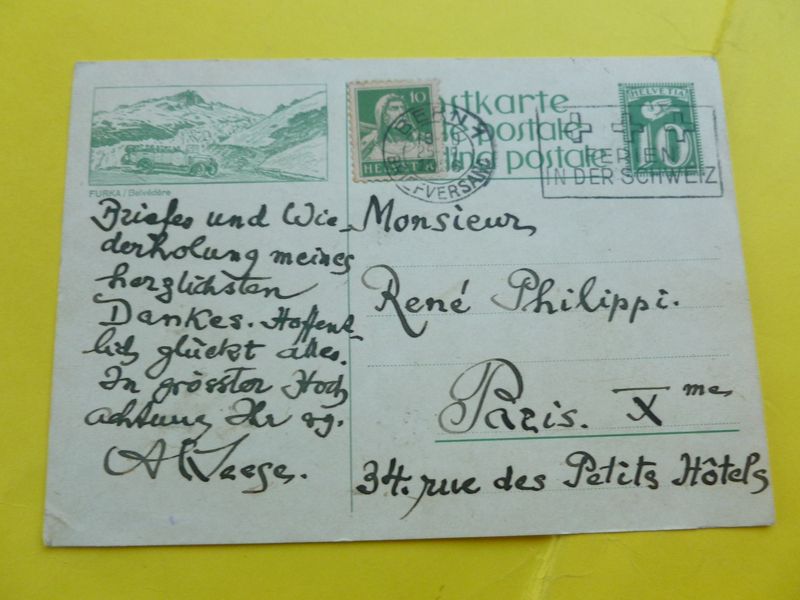 FURKA / Belvédère
10
HELVETIA
BERN
BRIEFVERSAND
ostkarte
postale
postale
HELVETIA
10
FERIEN
IN DER SCHWEIZ
Briefes und Wie-
derholung meines
herzlichsten
Dankes. Hoffent-
lich glückt alles.
In grösster Hoch
achtung Ihr
Monsieur
René Philippi.
Paris. Xme
34. rue des Petits Hôtels